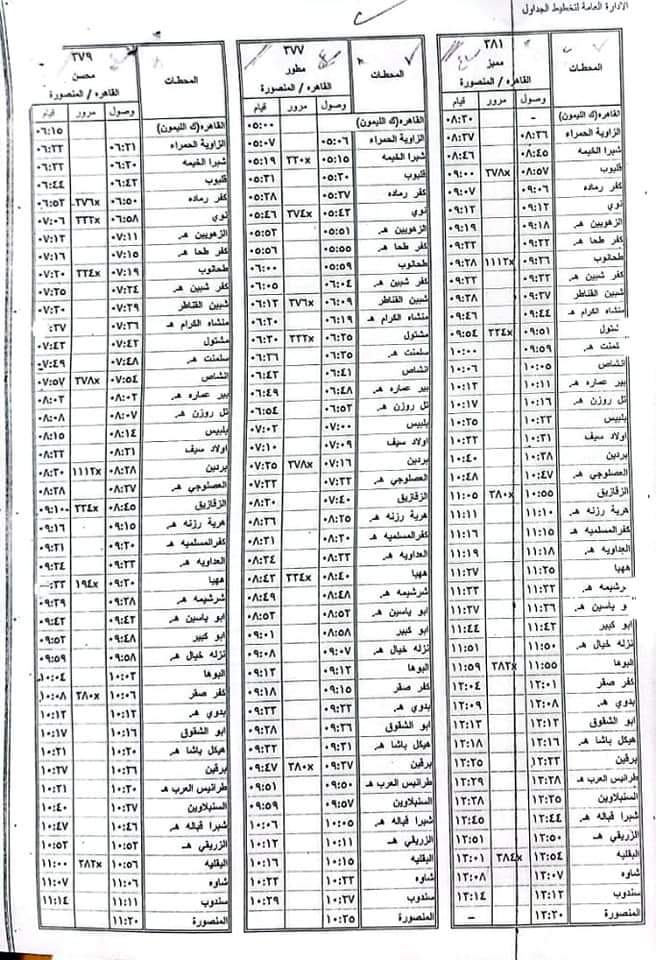 الادارة العامة لتخطيط الجداول
المحطات ٣٨١
مميز
القاهره / المنصورة
وصول مرور قيام
القاهره(ك الليمون) - ٠٨:٣٠
الزاوية الحمراء ٠٨:٣٦ ٠٨:٣٧
شبرا الخيمه ٠٨:٤٥ ٠٨:٤٦
قليوب ٠٨:٥٧ ٣٧٨x ٠٩:٠٠
كفر رماده ٠٩:٠٦ ٠٩:٠٧
نوي ٠٩:١٢ ٠٩:١٣
الزهويين هـ ٠٩:١٨ ٠٩:١٩
كفر طحا هـ ٠٩:٢٢ ٠٩:٢٣
طحانوب ٠٩:٢٦ ١١١٢x ٠٩:٢٨
كفر شبين هـ ٠٩:٣٢ ٠٩:٣٣
شبين القناطر ٠٩:٣٧ ٠٩:٣٨
منشاه الكرام هـ ٠٩:٤٤ ٠٩:٤٦
شتول ٠٩:٥١ ٣٣٤x ٠٩:٥٤
لمنت هـ ٠٩:٥٩ ١٠:٠٠
انشاص ١٠:٠٥ ١٠:٠٦
بير عماره هـ ١٠:١١ ١٠:١٢
تل روزن هـ ١٠:١٦ ١٠:١٧
بلبيس ١٠:٢٣ ١٠:٢٥
اولاد سيف ١٠:٣١ ١٠:٣٢
بردين ١٠:٣٨ ١٠:٤٠
العصلوجي هـ ١٠:٤٧ ١٠:٤٨
الزقازيق ١٠:٥٥ ٣٨٠x ١١:٠٥
هرية رزنه هـ ١١:١٠ ١١:١١
كفر المسلميه هـ ١١:١٥ ١١:١٦
العداويه هـ ١١:١٨ ١١:١٩
ههيا ١١:٢٥ ١١:٢٧
رشيمه هـ ١١:٣٢ ١١:٣٣
و ياسين هـ ١١:٣٦ ١١:٣٧
ابو كبير ١١:٤٢ ١١:٤٤
نزله خيال هـ ١١:٥٠ ١١:٥١
البوها ١١:٥٥ ٣٨٢x ١١:٥٩
كفر صقر ١٢:٠١ ١٢:٠٤
بدوي هـ ١٢:٠٨ ١٢:٠٩
ابو الشقوق ١٢:١٢ ١٢:١٣
هيكل باشا هـ ١٢:١٦ ١٢:١٨
برقين ١٢:٢٣ ١٢:٢٥
طرانيس العرب هـ ١٢:٢٨ ١٢:٢٩
السنبلاوين ١٢:٣٥ ١٢:٣٨
شبرا قباله هـ ١٢:٤٤ ١٢:٤٥
الزريقي هـ ١٢:٥٠ ١٢:٥١
البقليه ١٢:٥٤ ٣٨٤x ١٣:٠١
شاوه ١٣:٠٧ ١٣:٠٨
سندوب ١٣:١٢ ١٣:١٤
المنصورة ١٣:٢٠ -
المحطات ٣٧٧
مطور
القاهره / المنصورة
وصول مرور قيام
القاهره(ك الليمون) ٠٥:٠٠
الزاوية الحمراء ٠٥:٠٦ ٠٥:٠٧
شبرا الخيمه ٠٥:١٥ ٣٣٠x ٠٥:١٩
قليوب ٠٥:٣٠ ٠٥:٣١
كفر رماده ٠٥:٣٧ ٠٥:٣٨
نوي ٠٥:٤٣ ٣٧٤x ٠٥:٤٦
الزهويين هـ ٠٥:٥١ ٠٥:٥٢
كفر طحا هـ ٠٥:٥٥ ٠٥:٥٦
طحانوب ٠٥:٥٩ ٠٦:٠٠
كفر شبين هـ ٠٦:٠٤ ٠٦:٠٥
شبين القناطر ٠٦:٠٩ ٣٧٦x ٠٦:١٣
منشاه الكرام هـ ٠٦:١٩ ٠٦:٢٠
مشتول ٠٦:٢٥ ٣٣٢x ٠٦:٣٠
سلمنت هـ ٠٦:٣٥ ٠٦:٣٦
انشاص ٠٦:٤١ ٠٦:٤٢
بير عماره هـ ٠٦:٤٨ ٠٦:٤٩
تل روزن هـ ٠٦:٥٣ ٠٦:٥٤
بلبيس ٠٧:٠٠ ٠٧:٠٢
اولاد سيف ٠٧:٠٩ ٠٧:١٠
بردين ٠٧:١٦ ٣٧٨x ٠٧:٢٥
العصلوجي هـ ٠٧:٣٢ ٠٧:٣٣
الزقازيق ٠٧:٤٠ ٠٨:٢٠
هرية رزنه هـ ٠٨:٢٥ ٠٨:٢٦
كفر المسلميه هـ ٠٨:٣٠ ٠٨:٣١
العداويه هـ ٠٨:٣٣ ٠٨:٣٤
ههيا ٠٨:٤٠ ٣٣٤x ٠٨:٤٣
شرشيمه هـ ٠٨:٤٨ ٠٨:٤٩
ابو ياسين هـ ٠٨:٥٢ ٠٨:٥٣
ابو كبير ٠٨:٥٨ ٠٩:٠١
نزله خيال هـ ٠٩:٠٧ ٠٩:٠٨
البوها ٠٩:١٢ ٠٩:١٣
كفر صقر ٠٩:١٥ ٠٩:١٨
بدوي هـ ٠٩:٢٢ ٠٩:٢٣
ابو الشقوق ٠٩:٢٦ ٠٩:٢٨
هيكل باشا هـ ٠٩:٣١ ٠٩:٣٢
برقين ٠٩:٣٧ ٣٨٠x ٠٩:٤٧
طرانيس العرب هـ ٠٩:٥٠ ٠٩:٥١
السنبلاوين ٠٩:٥٧ ٠٩:٥٩
شبرا قباله هـ ١٠:٠٥ ١٠:٠٦
الزريقي هـ ١٠:١١ ١٠:١٢
البقليه ١٠:١٥ ١٠:١٦
شاوه ١٠:٢٢ ١٠:٢٣
سندوب ١٠:٢٧ ١٠:٢٩
المنصورة ١٠:٣٥
المحطات ٣٧٩
محسن
القاهره / المنصورة
وصول مرور قيام
القاهره(ك الليمون) ٠٦:١٥
الزاوية الحمراء ٠٦:٢١ ٠٦:٢٢
شبرا الخيمه ٠٦:٣٠ ٠٦:٣٢
قليوب ٠٦:٤٣ ٠٦:٤٤
كفر رماده ٠٦:٥٠ ٣٧٦x ٠٦:٥٣
نوي ٠٦:٥٨ ٣٣٢x ٠٧:٠٦
الزهويين هـ ٠٧:١١ ٠٧:١٢
كفر طحا هـ ٠٧:١٥ ٠٧:١٦
طحانوب ٠٧:١٩ ٣٣٤x ٠٧:٢٠
كفر شبين هـ ٠٧:٢٤ ٠٧:٢٥
شبين القناطر ٠٧:٢٩ ٠٧:٣٠
منشاه الكرام هـ ٠٧:٣٦ :٣٧
مشتول ٠٧:٤٢ ٠٧:٤٣
سلمنت هـ ٠٧:٤٨ ٠٧:٤٩
انشاص ٠٧:٥٤ ٣٧٨x ٠٧:٥٧
بير عماره هـ ٠٨:٠٢ ٠٨:٠٣
تل روزن هـ ٠٨:٠٧ ٠٨:٠٨
بلبيس ٠٨:١٤ ٠٨:١٥
اولاد سيف ٠٨:٢١ ٠٨:٢٢
بردين ٠٨:٢٨ ١١١٢x ٠٨:٣٠
العصلوجي هـ ٠٨:٣٧ ٠٨:٣٨
الزقازيق ٠٨:٤٥ ٣٣٤x ٠٩:١٠
هرية رزنه هـ ٠٩:١٥ ٠٩:١٦
كفر المسلميه هـ ٠٩:٢٠ ٠٩:٢١
العداويه هـ ٠٩:٢٣ ٠٩:٢٤
ههيا ٠٩:٣٠ ١٩٤x :٣٣
شرشيمه هـ ٠٩:٣٨ ٠٩:٣٩
ابو ياسين هـ ٠٩:٤٢ ٠٩:٤٣
ابو كبير ٠٩:٤٨ ٠٩:٥٢
نزله خيال هـ ٠٩:٥٨ ٠٩:٥٩
البوها ١٠:٠٣ ١٠:٠٤
كفر صقر ١٠:٠٦ ٣٨٠x ١٠:٠٨
بدوي هـ ١٠:١٢ ١٠:١٣
ابو الشقوق ١٠:١٦ ١٠:١٧
هيكل باشا هـ ١٠:٢٠ ١٠:٢١
برقين ١٠:٢٦ ١٠:٢٧
طرانيس العرب هـ ١٠:٣٠ ١٠:٣١
السنبلاوين ١٠:٣٧ ١٠:٤٠
شبرا قباله هـ ١٠:٤٦ ١٠:٤٧
الزريقي هـ ١٠:٥٢ ١٠:٥٣
البقليه ١٠:٥٦ ٣٨٢x ١١:٠٠
شاوه ١١:٠٦ ١١:٠٧
سندوب ١١:١١ ١١:١٤
المنصورة ١١:٢٠